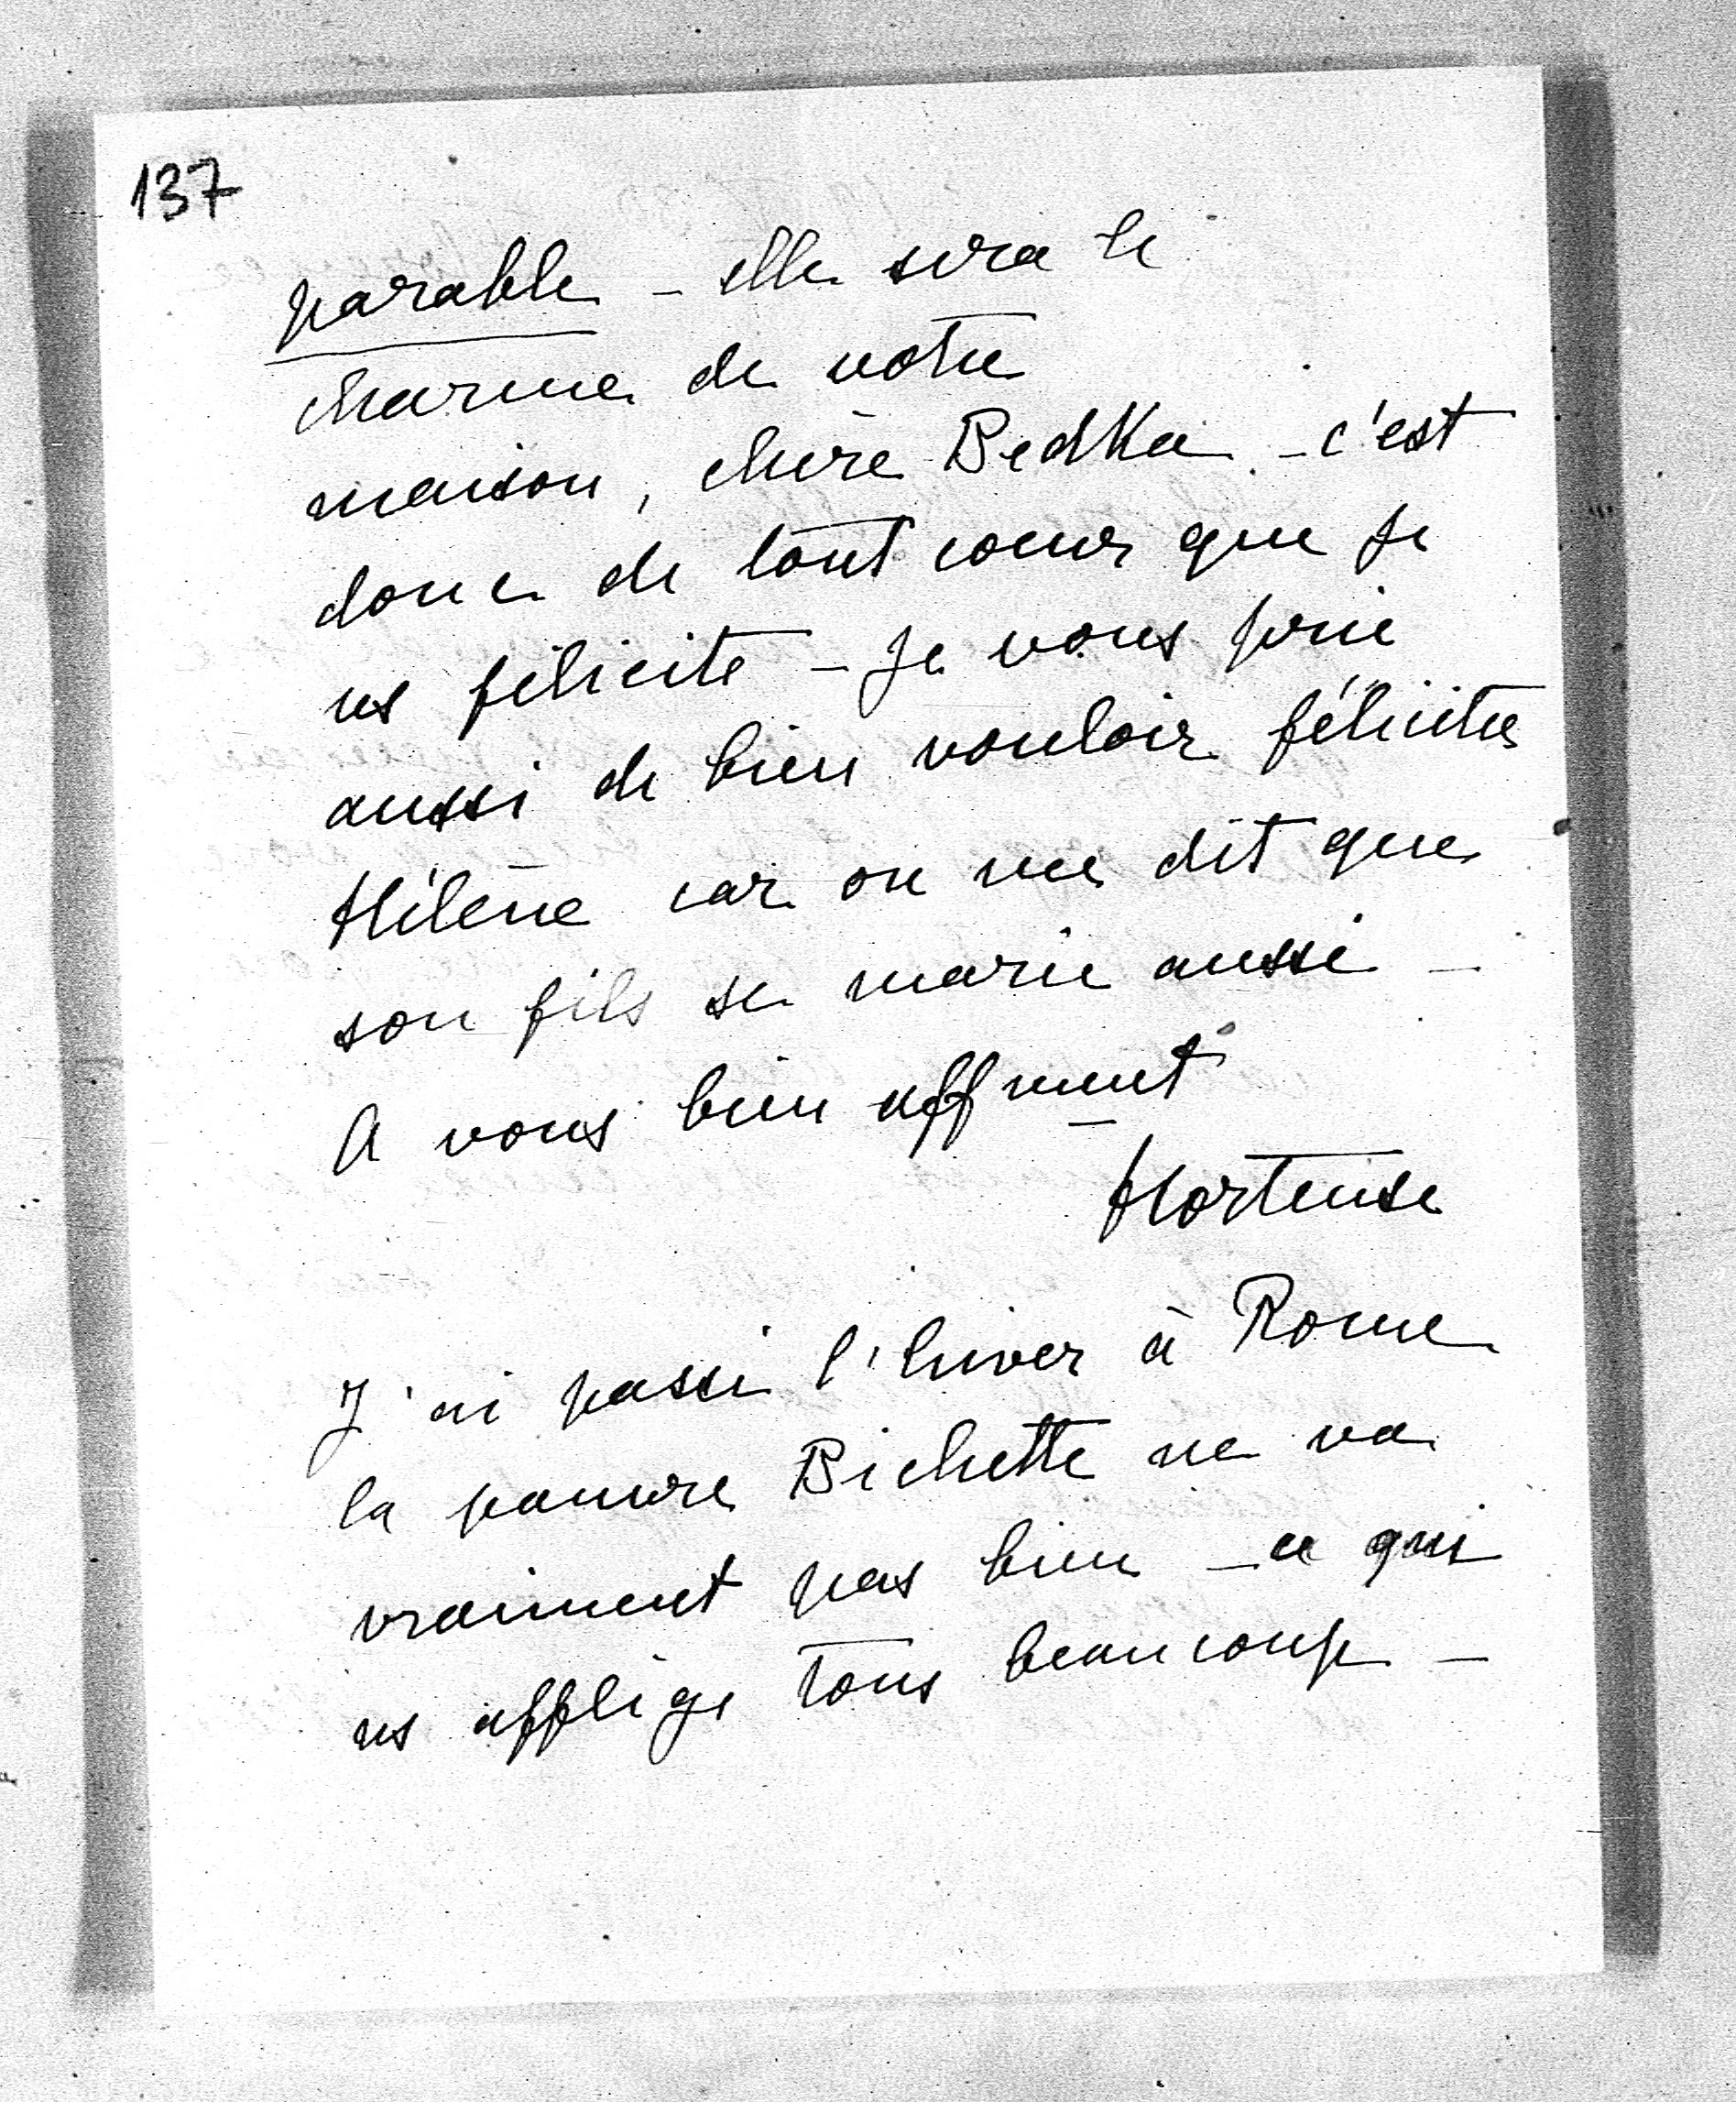 137
parable - elle sera le
charme de votre
maison, chère Bedka - c'est
donc de tout coeur que je
vs félicite - Je vous prie
aussi de bien vouloir féliciter
Hélène car on me dit que
son fils se marie aussi -
A vous bien affment
Hortense
J'ai passé l'hiver à Rome
la pauvre Bichette ne va
vraiment pas bien - ce qui
ns afflige tous beaucoup -